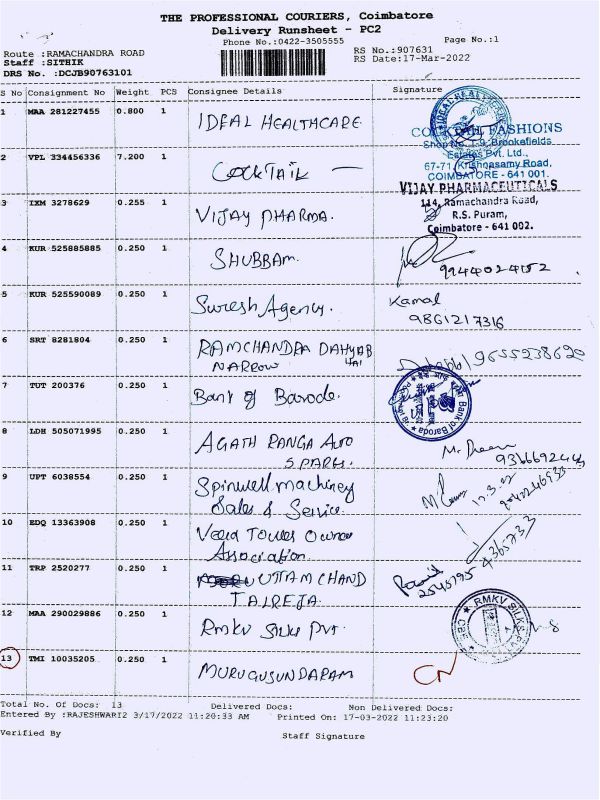 THE PROFESSIONAL COURIERS, Coimbatore
Delivery Runsheet - PC2
Phone No.:0422-3505555
Page No.:1
Route :RAMACHANDRA ROAD
Staff :SITHIK
DRS No. :DCJB90763101
RS No.:907631
RS Date:17-Mar-2022
S No Consignment No Weight PCS Consignee Details Signature
1 MAA 281227455 0.800 1 IDEAL HEALTHCARE
COCKTAIL FASHIONS
Shop No. 1-9, Brookefields
Estates Pvt. Ltd.,
67-71, Krishnasamy Road,
COIMBATORE - 641 001.
2 VPL 334456336 7.200 1 COCKTAIL —
VIJAY PHARMACEUTICALS
114, Ramachandra Road,
R.S. Puram,
Coimbatore - 641 002.
3 IXM 3278629 0.255 1 VIJAY PHARMA.
4 KUR 525885885 0.250 1 SHUBBAM. 9944024152
5 KUR 525590089 0.250 1 Suresh Agency. Kamal
9861217316
6 SRT 8281804 0.250 1 RAMCHANDRA DAHYAB
HAI
NARROW
9655238620
7 TUT 200376 0.250 1 Bank of Barode. Bank of Baroda
8 LDH 505071995 0.250 1 AGATH RANGA AUTO
SPARES.
9 UPT 6038554 0.250 1 Spinwell machinery
Sales & Service.
10 EDQ 13363908 0.250 1 Veera Tower Owner
Association.
11 TRP 2520277 0.250 1 UTTAM CHAND
TALREJA.
2545795 4365733
12 MAA 290029886 0.250 1 RMKV SILKS PVT. RMKV SILKS
13 TMI 10035205 0.250 1 MURUGUSUNDARAM CN
Total No. Of Docs: 13 Delivered Docs: Non Delivered Docs:
Entered By :RAJESHWARI2 3/17/2022 11:20:33 AM Printed On: 17-03-2022 11:23:20
Verified By Staff Signature